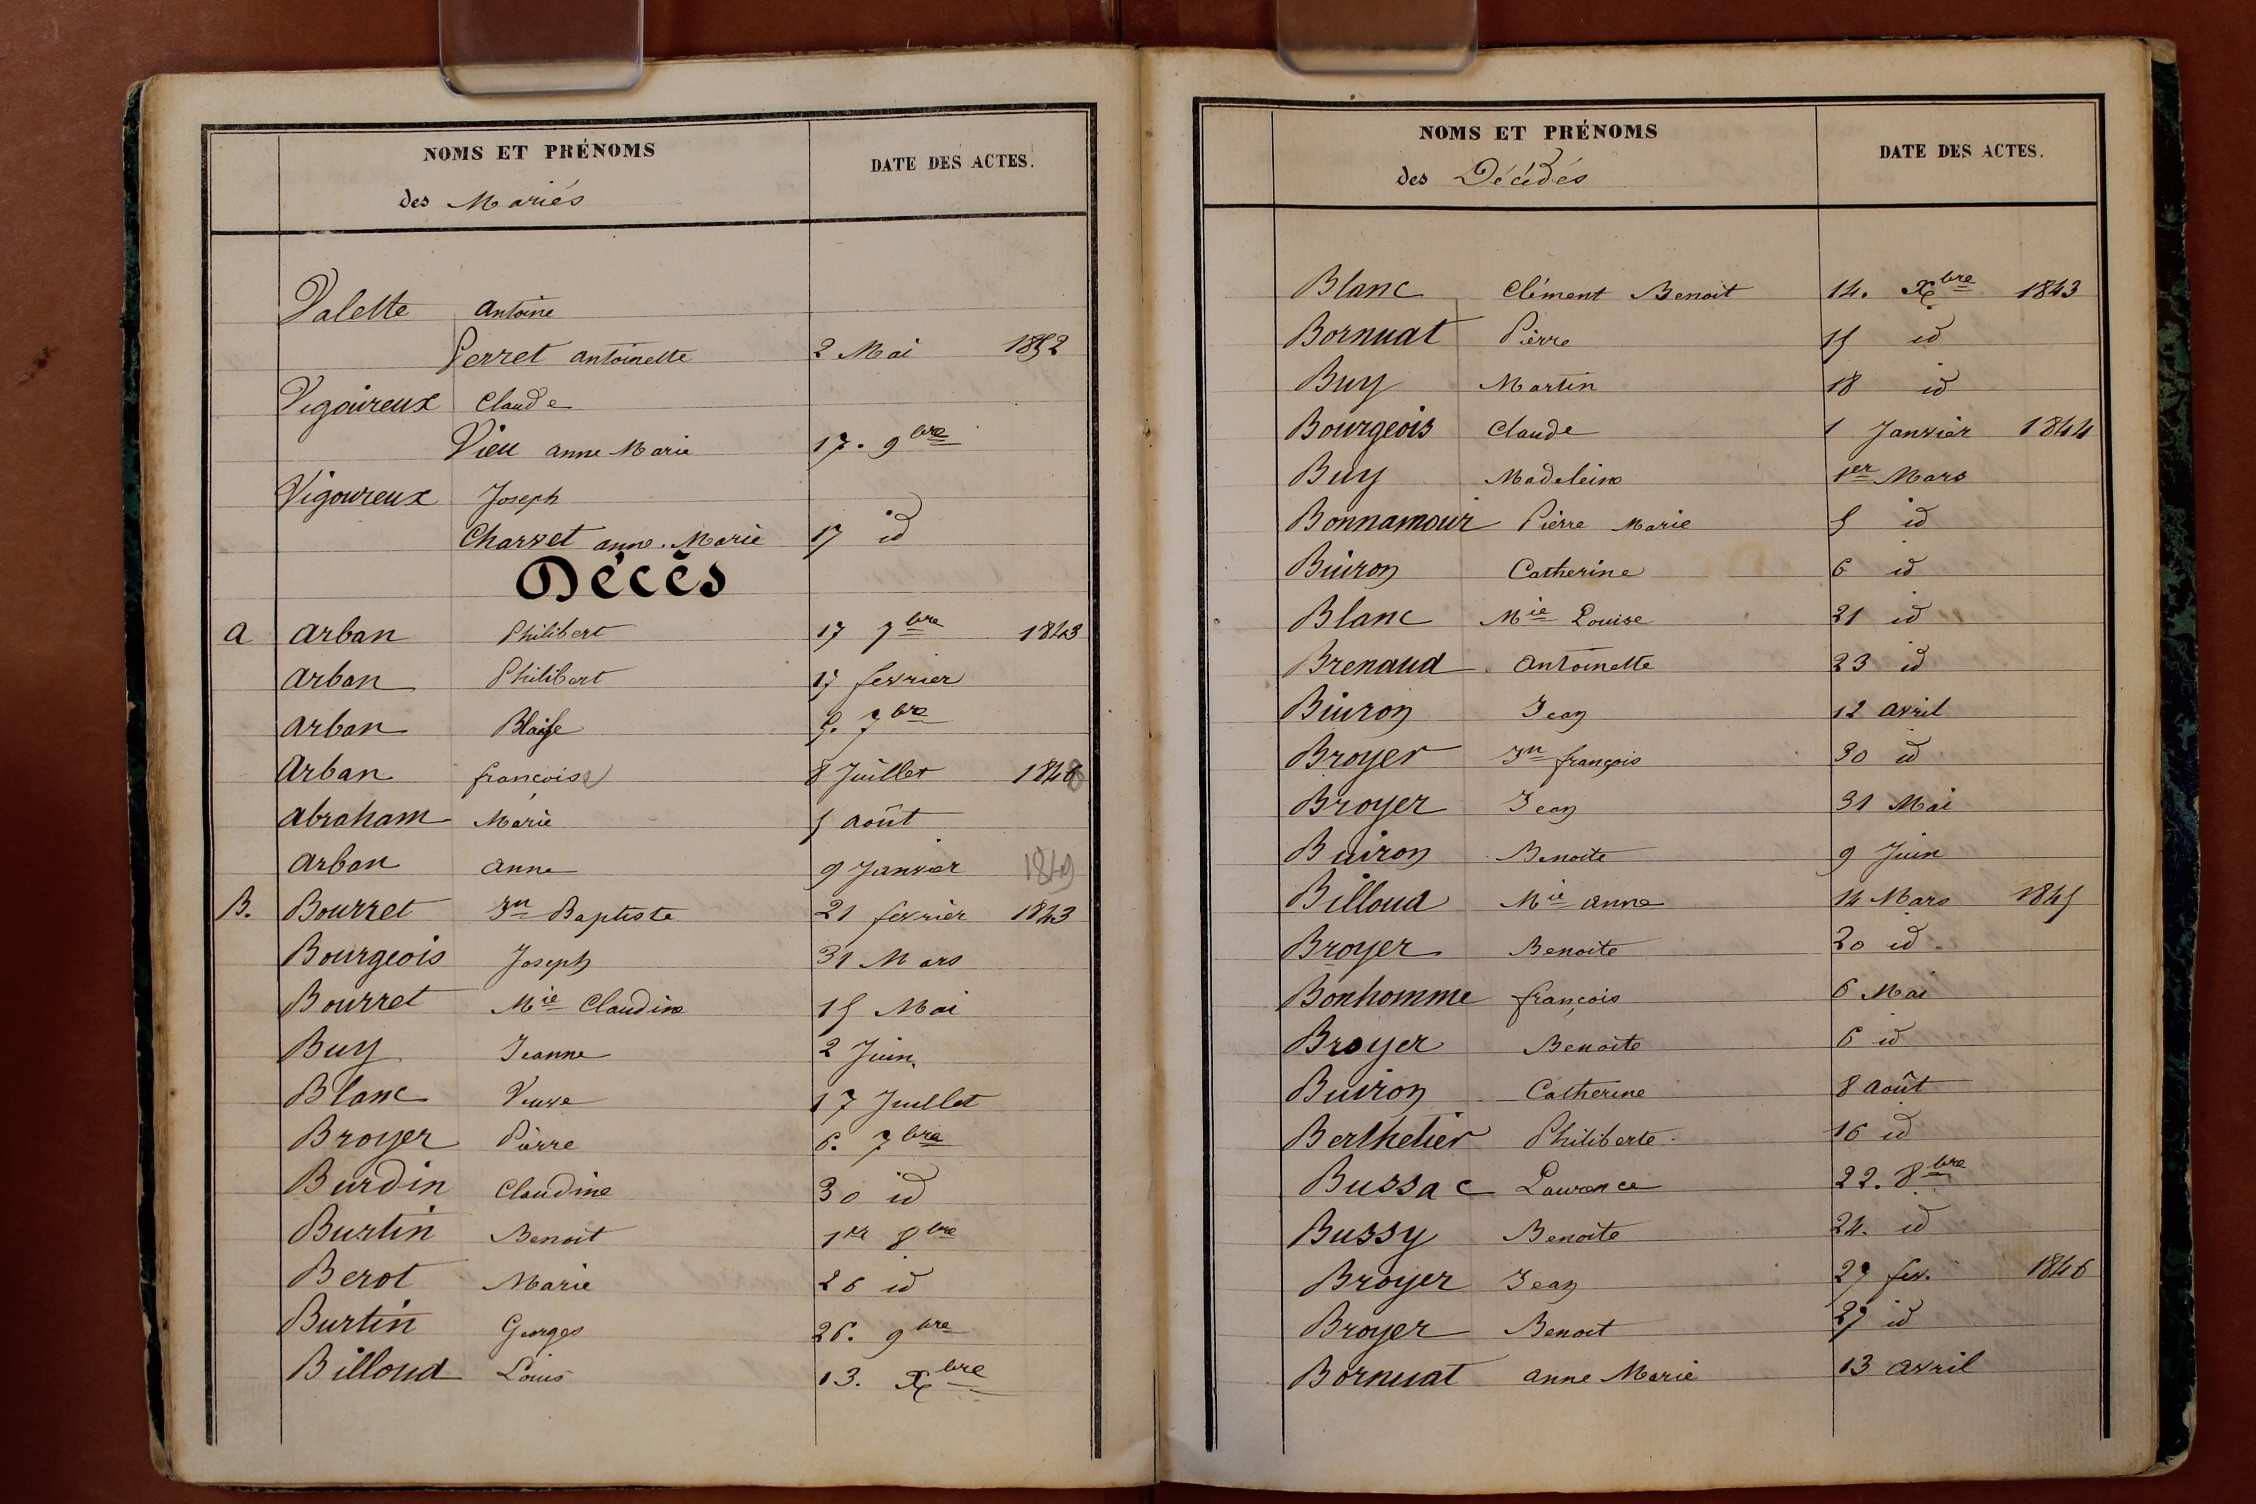 NOMS ET PRÉNOMS
DATE DES ACTES.
des Mariés
Valette Antoine
Perret Antoinette 2 Mai 1852
Vigoureux Claude
Vieu Anne Marie 17. 9bre
Vigoureux Joseph
Charvet Anne. Marie 17 id
Décès
A Arban Philibert 17 7bre 1843
Arban Philibert 17 fevrier
Arban Blaise 7bre
Arban françoise 8 Juillet 1848
Abraham Marie 5 Août
Arban Anne 9 Janvier 1849
B. Bourret Jn Baptiste 21 fevrier 1843
Bourgeois Joseph 31 Mars
Bourret Mie Claudine 15 Mai
Buy Jeanne 2 Juin
Blanc Veuve 17 Juillet
Broyer Pierre 6. 7bre
Burdin Claudine 30 id
Burtin Benoit 1er 8bre
Berot Marie 26 id
Burtin Georges 26. 9bre
Billoud Louis 13. Xbre
NOMS ET PRÉNOMS
DATE DES ACTES.
des Décédés
Blanc Clément Benoit 14. Xbre 1843
Bornuat Pierre 15 id
Buy Martin 18 id
Bourgeois Claude 1 Janvier 1844
Buy Madeleine 1er Mars
Bonnamour Pierre Marie 5 id
Buiron Catherine 6 id
Blanc Mie Louise 21 id
Brenaud Antoinette 23 id
Buiron Jean 12 Avril
Broyer Jn françois 30 id
Broyer Jean 31 Mai
Buiron Benoite 9 Juin
Billoud Mie Anne 14 Mars 1845
Broyer Benoite 20 id
Bonhomme françois 6 Mai
Broyer Benoite 6 id
Buiron Catherine 8 Août
Berthelier Philiberte 16 id
Bussac Laurence 22. 8bre
Bussy Benoite 24. id
Broyer Jean 27 fev. 1846
Broyer Benoit 27 id
Bornuat Anne Marie 13 Avril